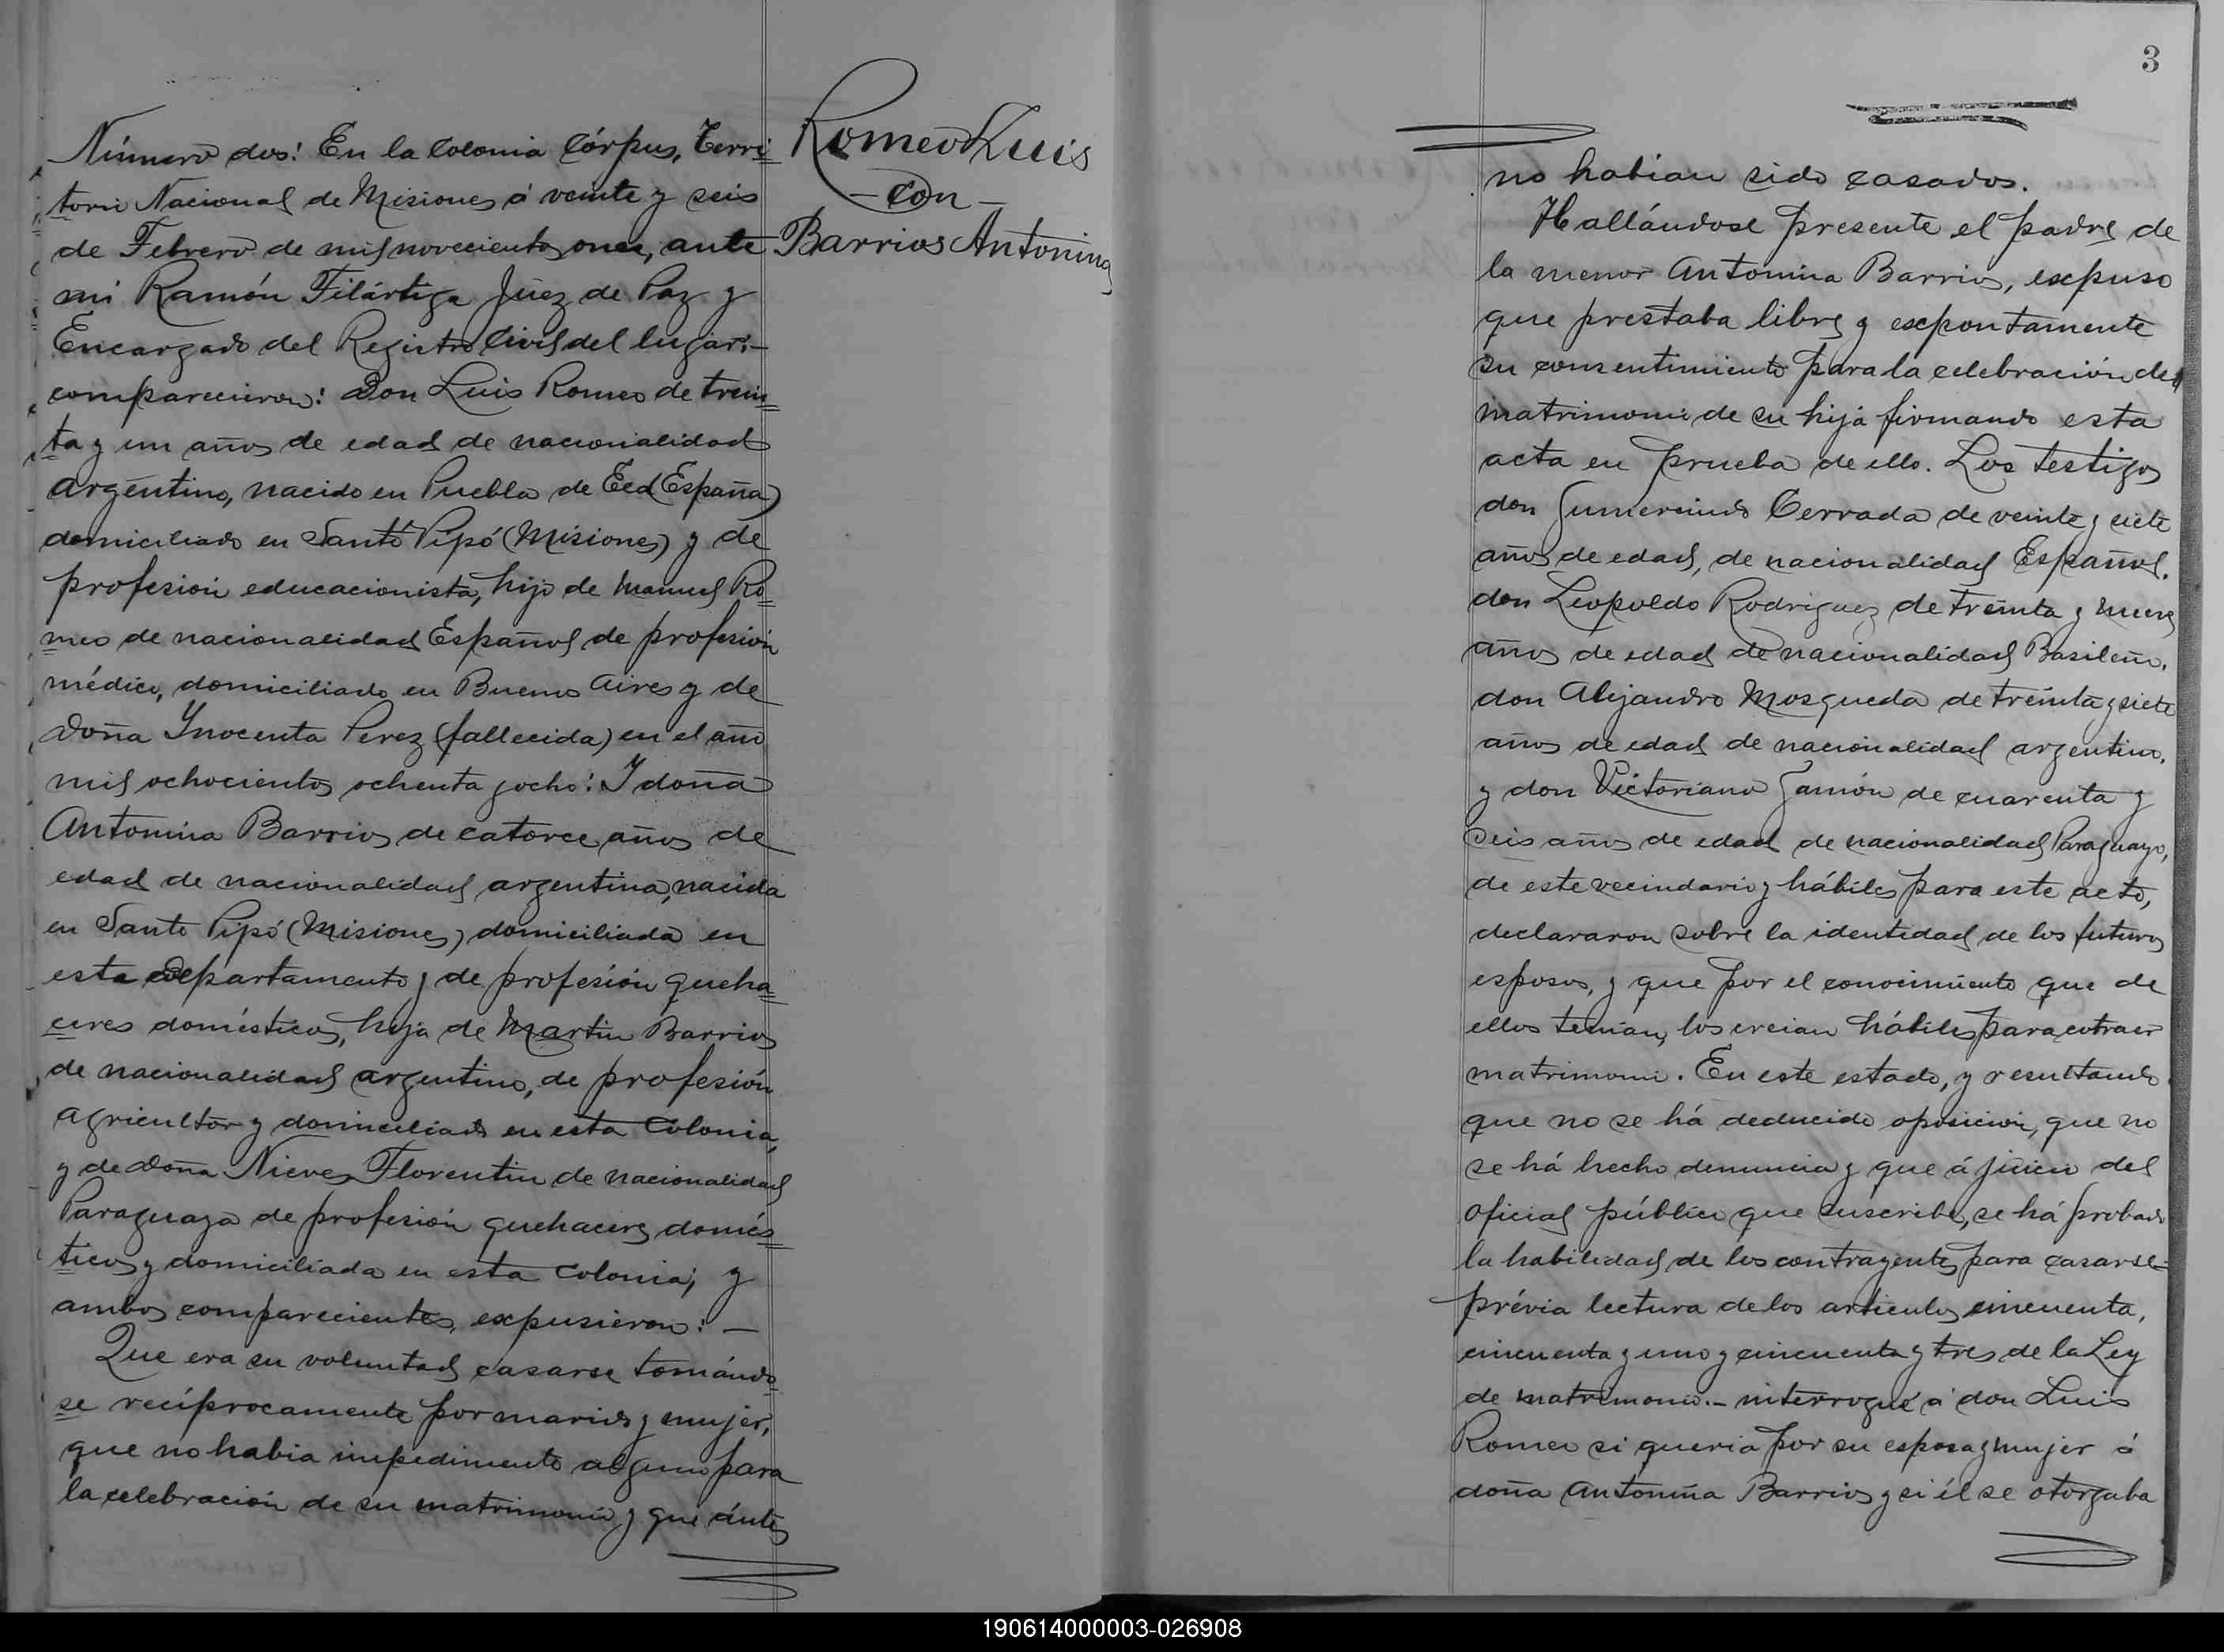 Número dos: En la Colonia Córpus, Terri=
torio Nacional de Misiones á veinte y seis
de Febrero de mil novecientos once, ante
mi Ramón Filártiga Juez de Paz y
Encargado del Registro Civil del lugar:-
comparecieron: Don Luis Romeo de trein=
ta y un años de edad de nacionalidad
argentino, nacido en Puebla de (España)
domiciliado en Santo Pipó (Misiones) y de
profesión educacionista, hijo de Manuel Ro=
meo de nacionalidad Español de profesión
médico, domiciliado en Buenos Aires y de
Doña Ynocenta Perez (fallecida) en el año
mil ochocientos ochenta y ocho: Y doña
Antonina Barrios de catorce años de
edad de nacionalidad argentina, nacida
en Santo Pipó (Misiones) domiciliada en
esta departamento y de profesión queha=
ceres domésticos, hija de Martin Barrios
de nacionalidad argentino, de profesión
agricultor y domiciliado en esta Colonia,
y de doña Nieves Florentin de nacionalidad
Paraguaya de profesión quehaceres domés=
ticos y domiciliada en esta Colonia; y
ambos comparecientes, expusieron: —
Que era su voluntad casarse tomándo=
se recíprocamente por marido y mujer,
que no habia impedimento alguno para
la celebración de su matrimonio y que ántes
Romeo Luis
- con -
Barrios Antonina
3
no habian sido casados.
Hallándose presente el padre de
la menor Antonina Barrios, expuso
que prestaba libre y expontamente
su consentimiento para la celebración del
matrimonio de su hija firmando esta
acta en prueba de ello. Los testigos
don Gumercindo Cerrada de veinte y siete
años de edad, de nacionalidad Español.
don Leopoldo Rodriguez de treinta y nueve
años de edad de nacionalidad Basileño.
don Alejandro Mosqueda de treinta y siete
años de edad de nacionalidad argentino,
y don Victoriano Gamón de cuarenta y
seis años de edad de nacionalidad Paraguayo,
de este vecindario y hábiles para este acto,
declararon sobre la identidad de los futuros
esposos, y que por el conocimiento que de
ellos tenian, los creian hábiles para cotraer
matrimonio. En este estado, y resultando
que no se há deducido oposicion, que no
se há hecho denuncia y que á juicio del
oficial público que suscribe, se há probado
la habilidad de los contrayentes para casarse=
prévia lectura de los articulos cincuenta,
cincuenta y uno y cincuenta y tres de la Ley
de matrimonio.- interrogué á don Luis
Romeo si queria por su esposa y mujer á
doña Antonina Barrios y si él se otorgaba
190614000003-026908